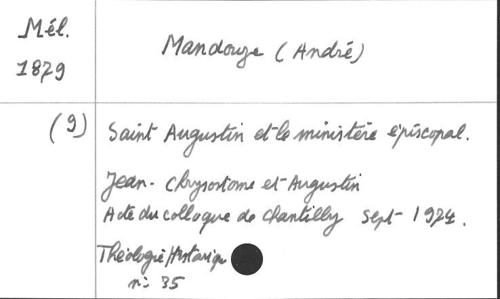 Mél.
1879
Mandouze (André)
(9)
Saint Augustin et le ministère épiscopal.
Jean-Chrysostome et Augustin
Acte du colloque de Chantilly Sept- 1974.
Théologie Historique
n: 35